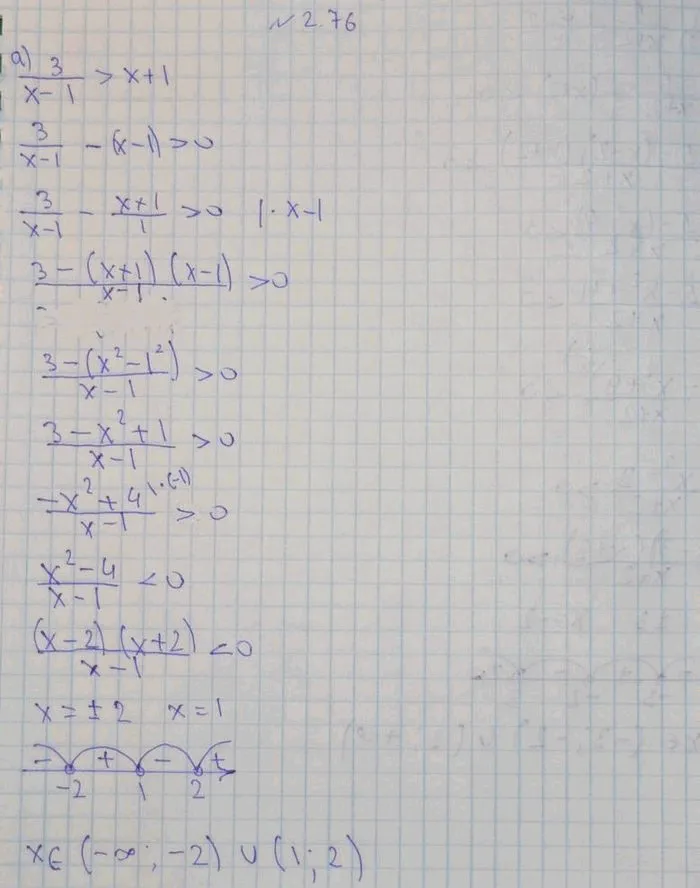 № 2.76
а) 3/(x-1) > x+1
3/(x-1) - (x-1) > 0
3/(x-1) - (x+1)/1 > 0 | · x-1
(3 - (x+1)(x-1))/(x-1) > 0
(3 - (x² - 1²))/(x-1) > 0
(3 - x² + 1)/(x-1) > 0
(-x² + 4)/(x-1) > 0 | · (-1)
(x² - 4)/(x-1) < 0
((x-2)(x+2))/(x-1) < 0
x = ± 2 x = 1
- + - +
-2 1 2
x ∈ (-∞; -2) ∪ (1; 2)